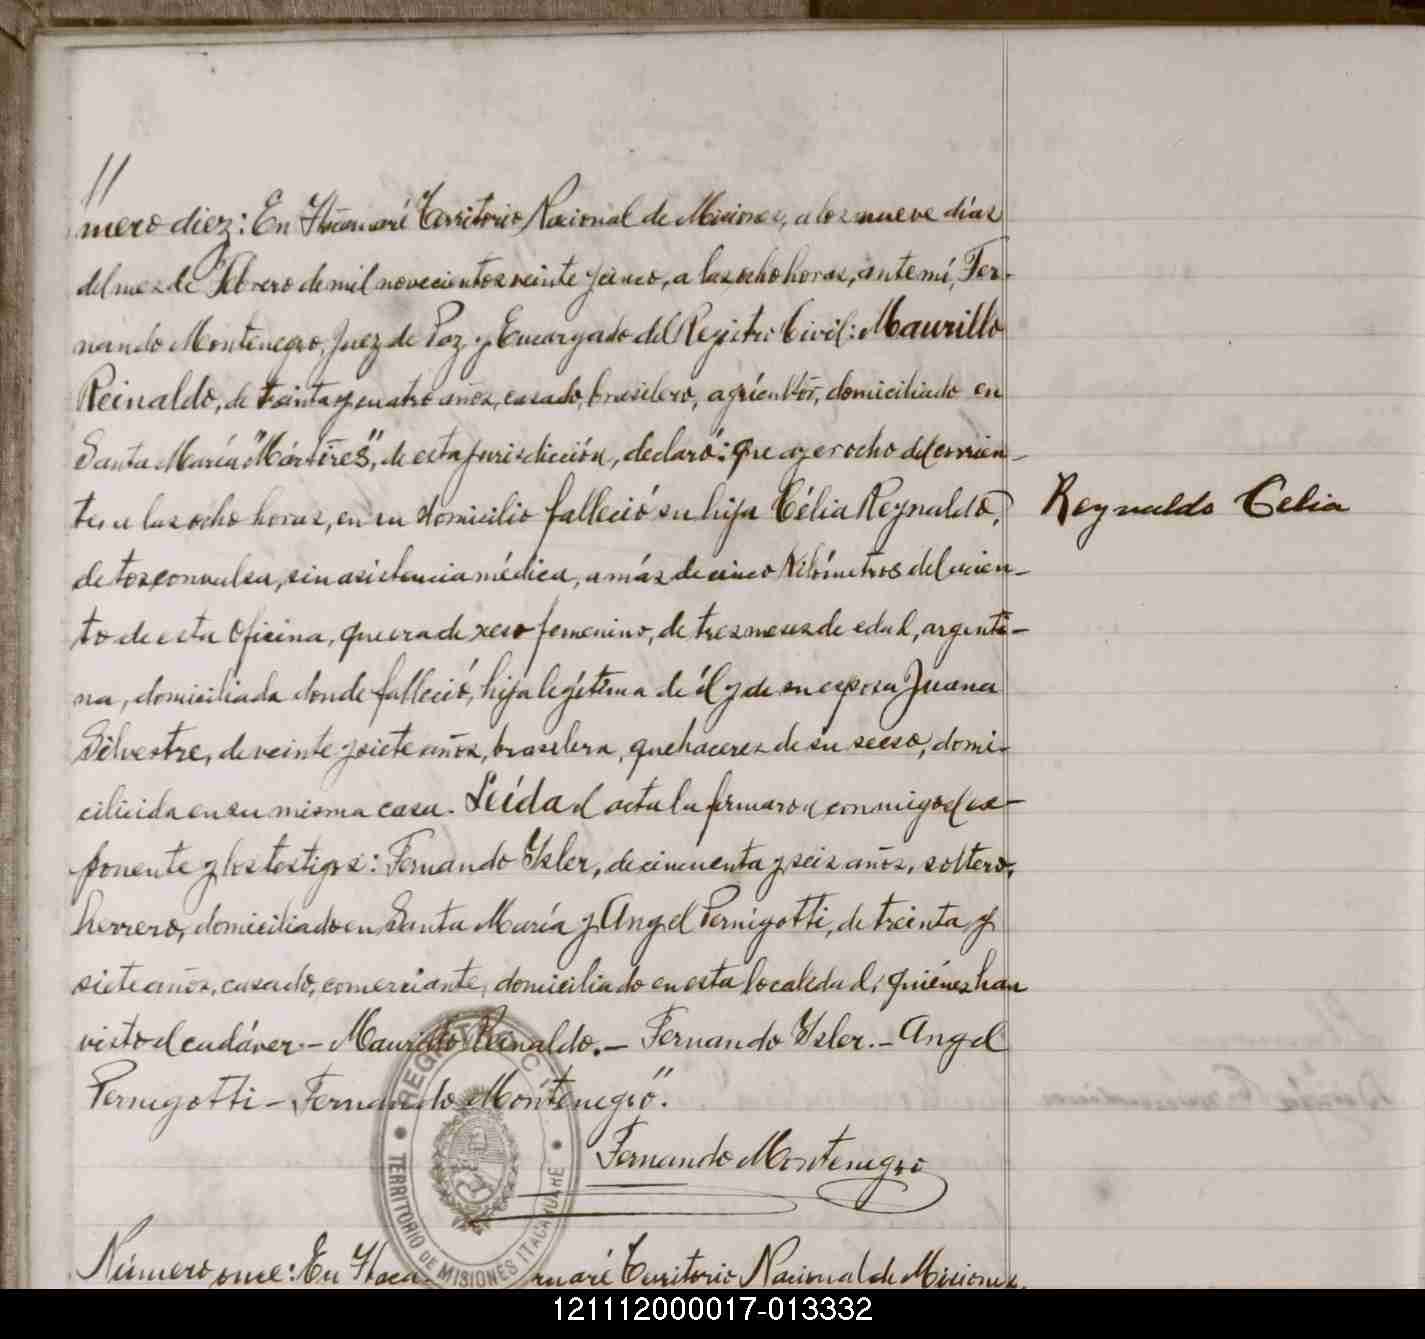 11
mero diez: En Itacaruaré Territorio Nacional de Misiones, a los nueve días
del mes de Febrero de mil novecientos veinte y cinco, a las ocho horas, ante mí, Fer-
nando Montenegro, Juez de Paz y Encargado del Registro Civil: Maurillo
Reinaldo, de treinta y cuatro años, casado, brasilero, agricultor, domiciliado en
Santa María "Mártires", de esta jurisdicción, declaró: que ayer ocho del corrien-
te, a las ocho horas, en su domicilio falleció su hija Célia Reynaldo,
Reynaldo Celia
de tos convulsa, sin asistencia médica, a más de cinco kilómetros del asien-
to de esta Oficina, que era de xeso femenino, de tres meses de edad, argenti-
na, domiciliada donde falleció, hija legítima de él y de su esposa Juana
Silvestre, de veinte y siete años, brasilera, quehaceres de su secso, domi-
ciliada en su misma casa. Leída el acta la firmaron conmigo el ex-
ponente y los testigos: Fernando Ysler, de cincuenta y seis años, soltero,
herrero, domiciliado en Santa María y Angel Pernigotti, de treinta y
siete años, casado, comerciante, domiciliado en esta localidad, quiénes han
visto el cadáver.- Maurillo Reinaldo.- Fernando Ysler.- Angel
Pernigotti- Fernando Montenegro".
Fernando Montenegro
REGISTRO C
TERRITORIO DE MISIONES ITACARUARÉ
Número once: En Itacaruaré Territorio Nacional de Misiones,
121112000017-013332